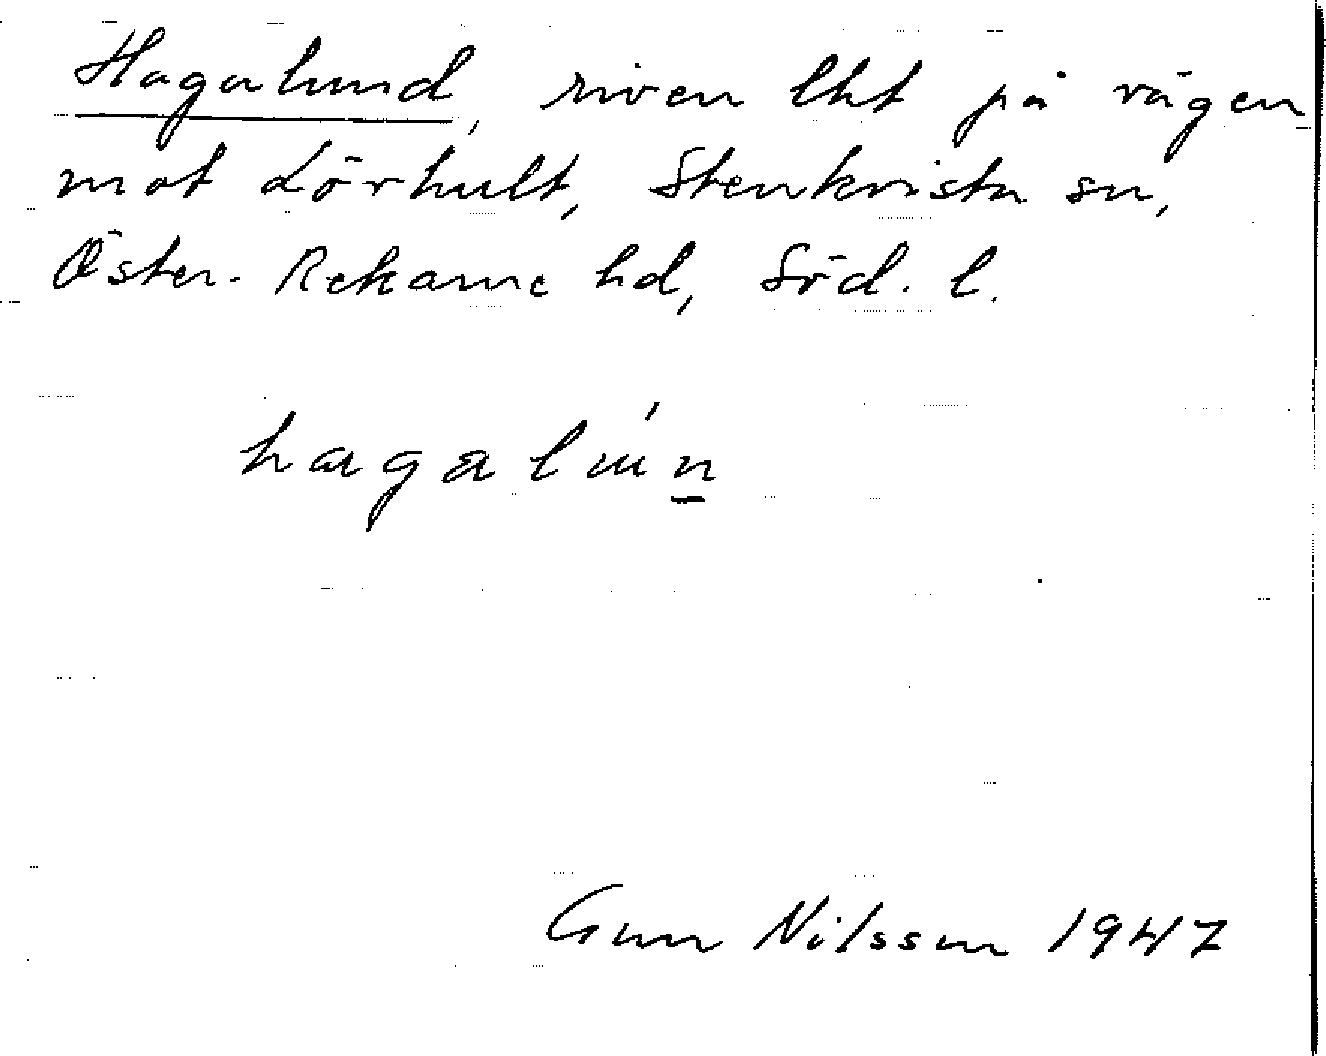 Hagalund, riven lht på vägen
mot Lörhult, Stenkvista sn,
Öster-Rekarne hd, Söd. l.
hagalún
Gun Nilsson 1947